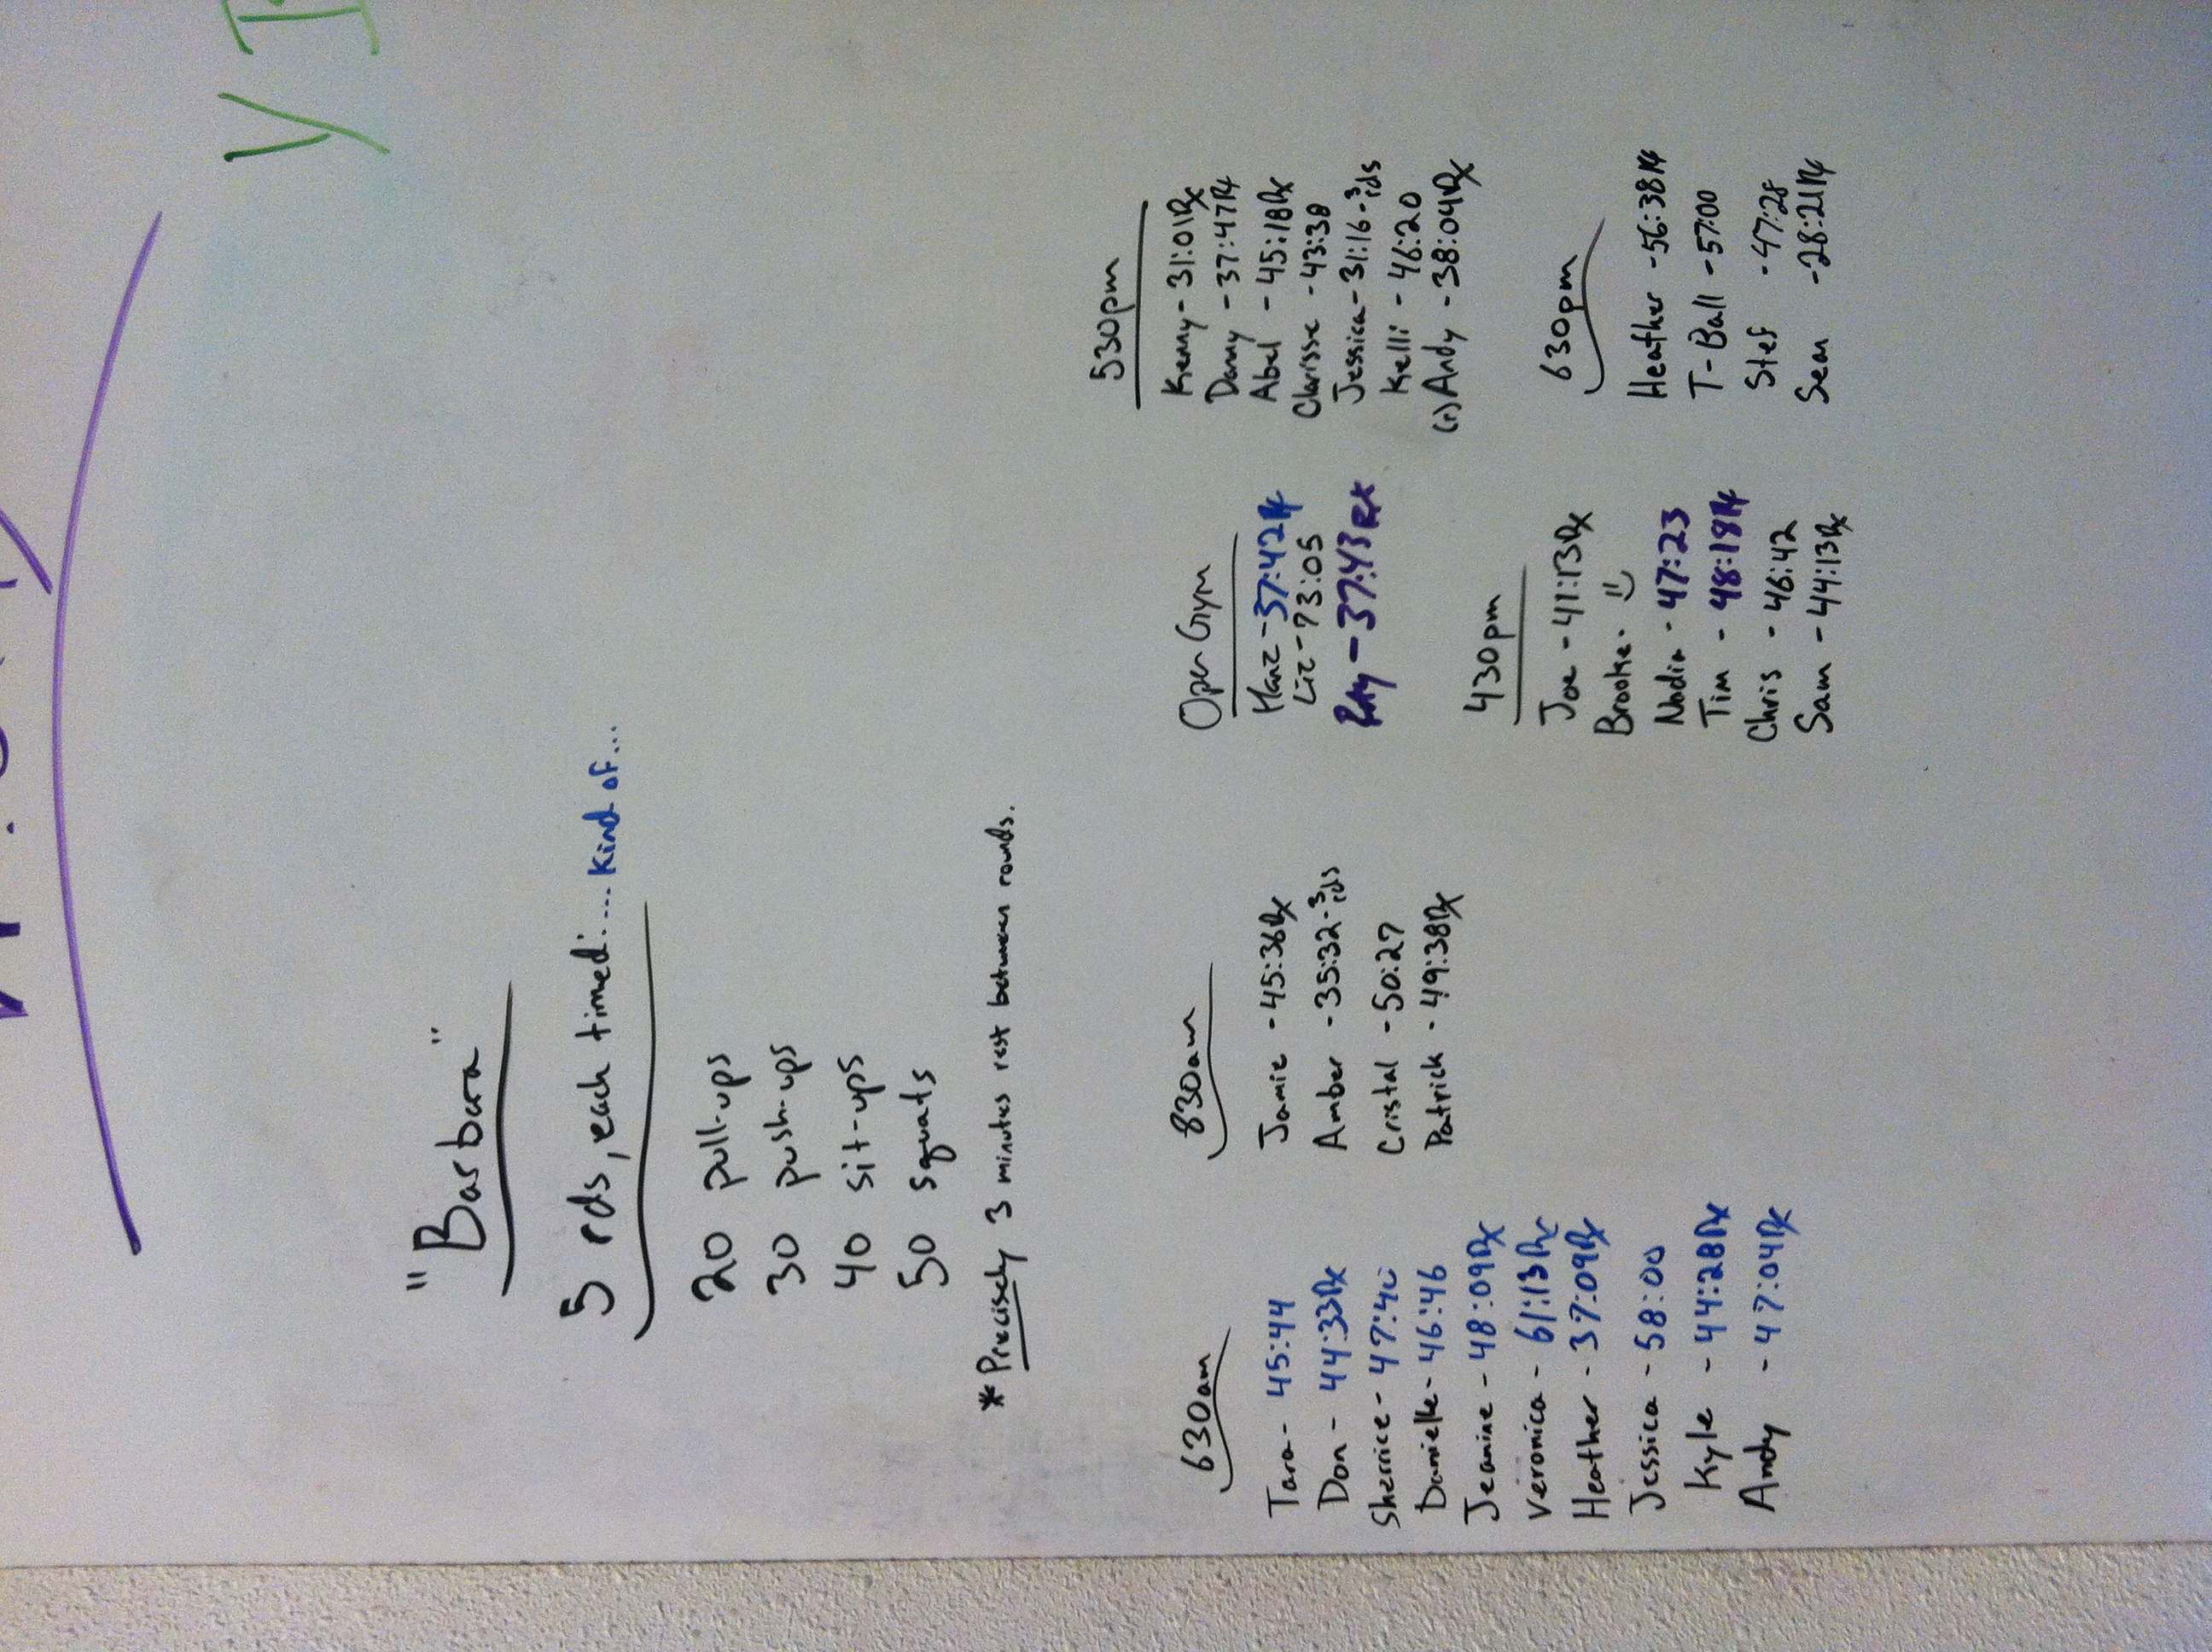 "Barbara"
5 rds, each timed:... Kind of...
20 pull-ups
30 push-ups
40 sit-ups
50 squats
*Precisely 3 minutes rest between rounds.
630am
Tara - 45:44
Don - 44:33Rx
Sherrice - 47:40
Danielle - 46:46
Jeanine - 48:09Rx
Veronica - 61:13Rx
Heather - 37:09Rx
Jessica - 58:00
Kyle - 44:28Rx
Andy - 47:04Rx
830am
Jamie - 45:36Rx
Amber - 35:32-3rds
Cristal - 50:27
Patrick - 49:38Rx
Open Gym
Marz - 37:42Rx
Liz - 73:05
Ray - 37:43Rx
430pm
Joe - 41:13Rx
Brooke - :)
Nadia - 47:23
Tim - 48:18Rx
Chris - 46:42
Sam - 44:13Rx
530pm
Kenny - 31:01Rx
Danny - 37:47Rx
Abel - 45:18Rx
Clarisse - 43:38
Jessica - 31:16-3rds
Kelli - 46:20
(r) Andy - 38:04Rx
630pm
Heather - 56:38Rx
T-Ball - 57:00
Stef - 47:28
Sean - 28:21Rx